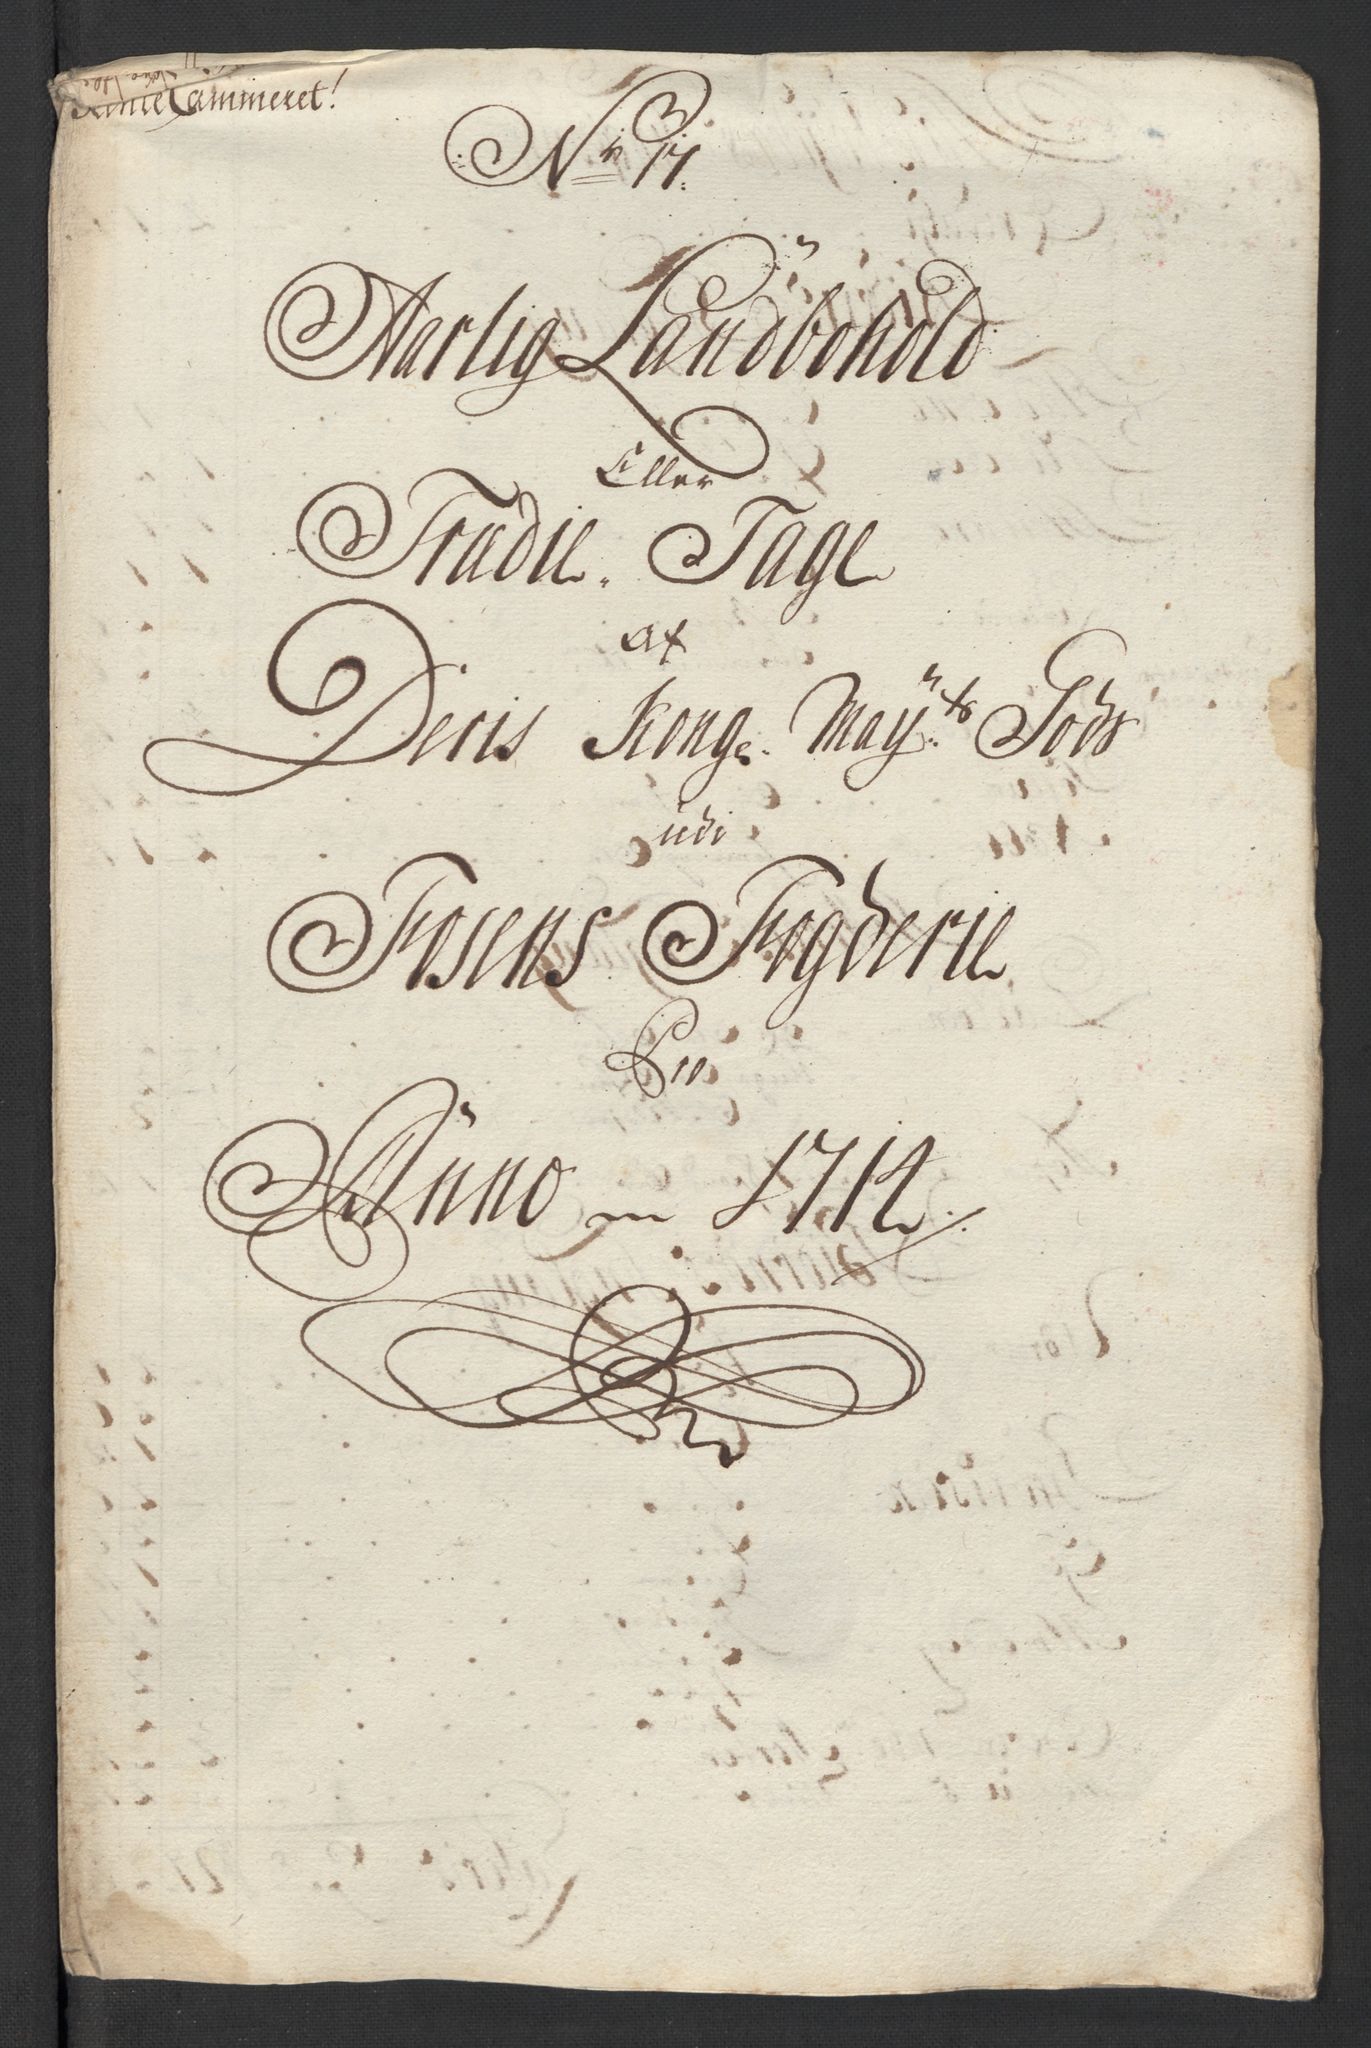 RenteCammeret!
No 17.
Aarlig Landbohold
Eller
Tradie. Tage
af
Deris Kong. Mayts Gods
udi
Fosens Fogderie
Pro
Anno 1712